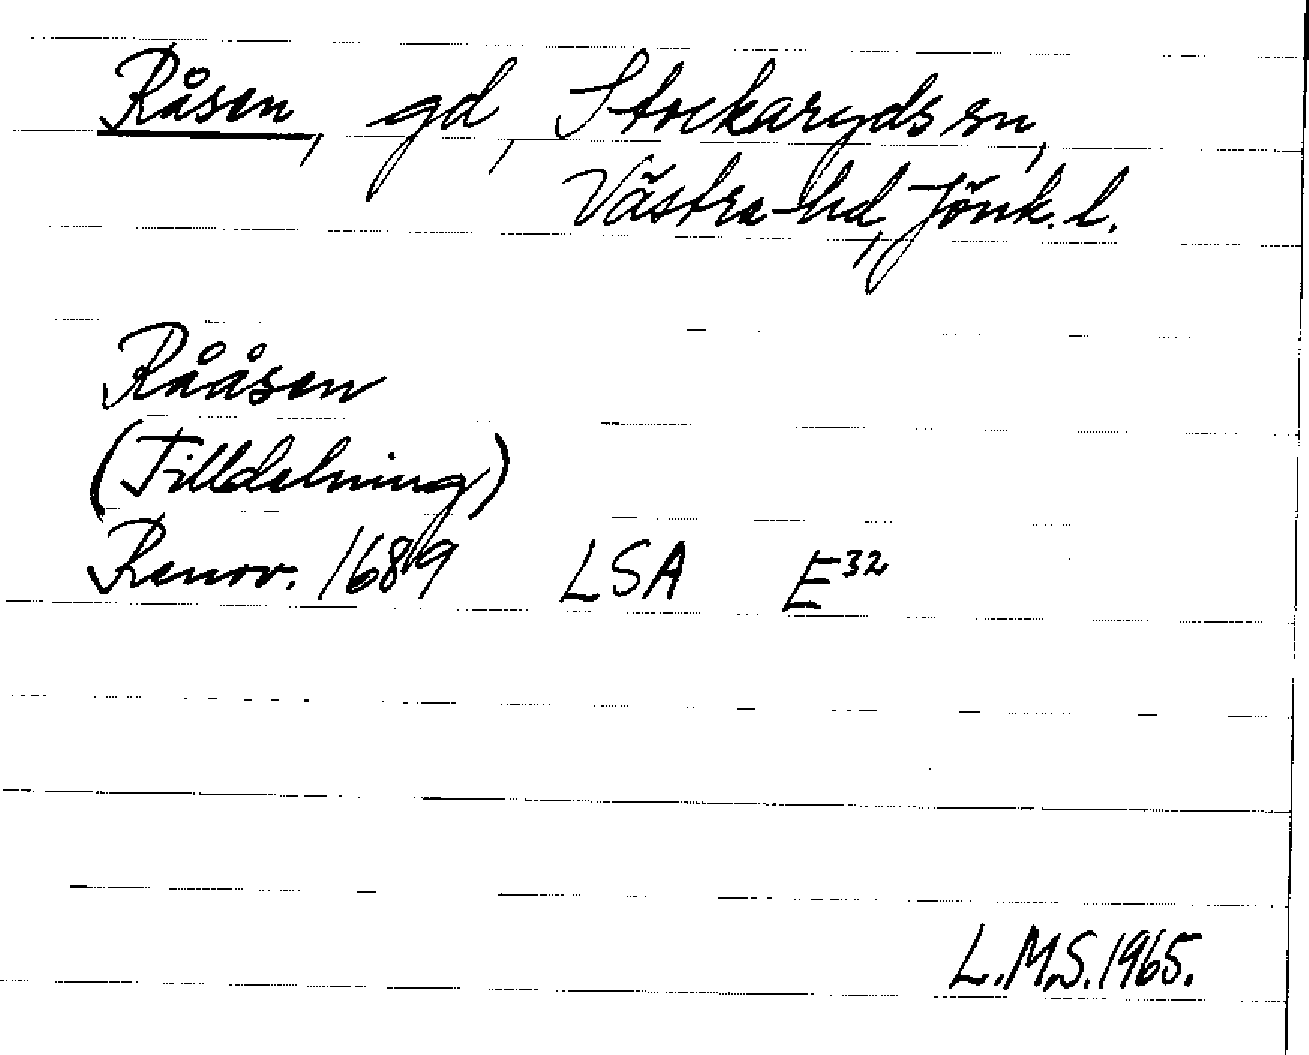 Råsen, gd, Stockaryds sn,
Västra hd, Jönk. l.
Rååsen
(Tilldelning)
Renov. 1689 LSA E32
L.M.S. 1965.